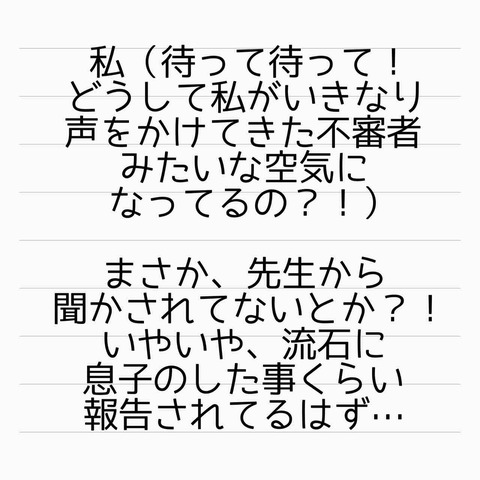 私（待って待って！
どうして私がいきなり
声をかけてきた不審者
みたいな空気に
なってるの？！）
まさか、先生から
聞かされてないとか？！
いやいや、流石に
息子のした事くらい
報告されてるはず…